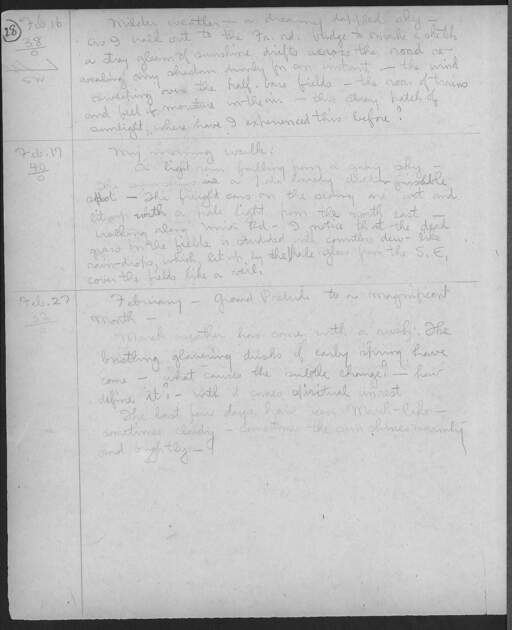 28
Feb. 16
38
0
SW
Milder weather — a dreamy dappled sky —
As I walk out to the Fr. rd. bridge to make a sketch
a stray gleam of sunshine drifts across the road re-
vealing my shadow dimly for an instant — the wind
sweeping over the half-bare fields — the roar of trains
and bell to moisture in the air — this stray patch of
sunlight, where have I experienced this before?
Feb. 17
40
0
My morning walk:
A light rain falling from a gray sky —
The are a pale distinguishable
— The freight cars on the are wet and
lit up with a pale light from the north east —
Walking along rd — I notice that the dead
grass in the fields is studded with countless dew-like
rain-drops, which lit up by the pale glow from the S.E,
cover the fields like a veil.
Feb. 27
32
February — Grand Prelude to a magnificent
Month —
March weather has come with a rush. The
bristling glowering of early spring have
come — what causes the subtle change? — how
define it? — with it comes spiritual unrest
The last few days have been March-like —
sometimes cloudy — sometimes the sun shines warmly
and brightly —